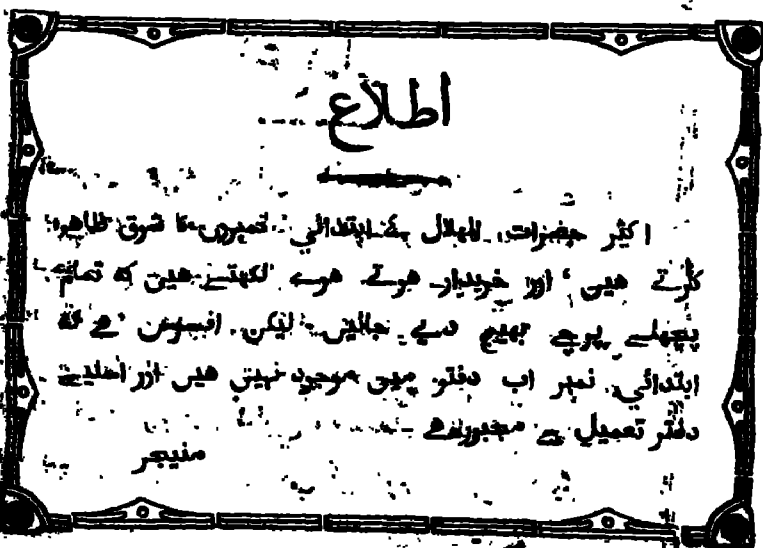 اطلاع
اکثر حضرات الہلال کے ابتدائي نمبروں کا شوق ظاہر
کرتے ہیں ' اور خریدار ہوتے ہوے لکھتے ہیں کہ تمام
پچھلے پرچے بھیج دیے جائیں - لیکن افسوس ہے کہ
ابتدائي نمبر اب دفتر میں موجود نہیں ہیں اور اسلیے
دفتر تعمیل سے مجبور ہے -
منیجر